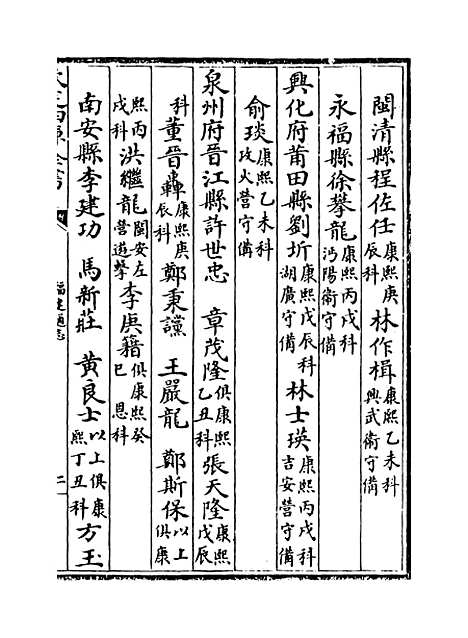 閩清縣程佐任康熙庚辰科林作楫康熙乙未科興武衛守備
永福縣徐攀龍康熙丙戌科沔陽衛守備
興化府莆田縣劉圻康熙戊辰科湖廣守備林士瑛康熙丙戌科吉安營守備
俞琰康熙乙未科攻火營守備
泉州府晉江縣許世忠 章茂隆俱康熙乙丑科張天隆康熙戊辰
科董晉轟康熙庚辰科鄭秉讜 王嚴龍 鄭斯保以上俱康
熙丙戌科洪繼龍閩安左營遊擊李庚籍俱康熙癸巳恩科
南安縣李建功 馬新莊 黃良士以上俱康熙丁丑科方玉
福建通志